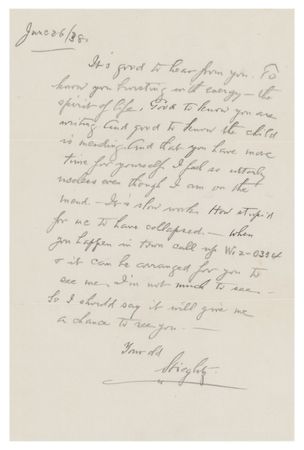 June 26/38.
It's good to hear from you. To
know you bursting with energy — the
spirit of life. Good to know you are
writing and good to know the child
is mending. And that you have more
time for yourself. I feel so utterly
useless even though I am on the
mend. — It's slow work. How stupid
for me to have collapsed. — When
you happen in town call up Wi 2-0394
& it can be arranged for you to
see me. I'm not much to see.
So I should say it will give me
a chance to see you. —
Your old
Stieglitz